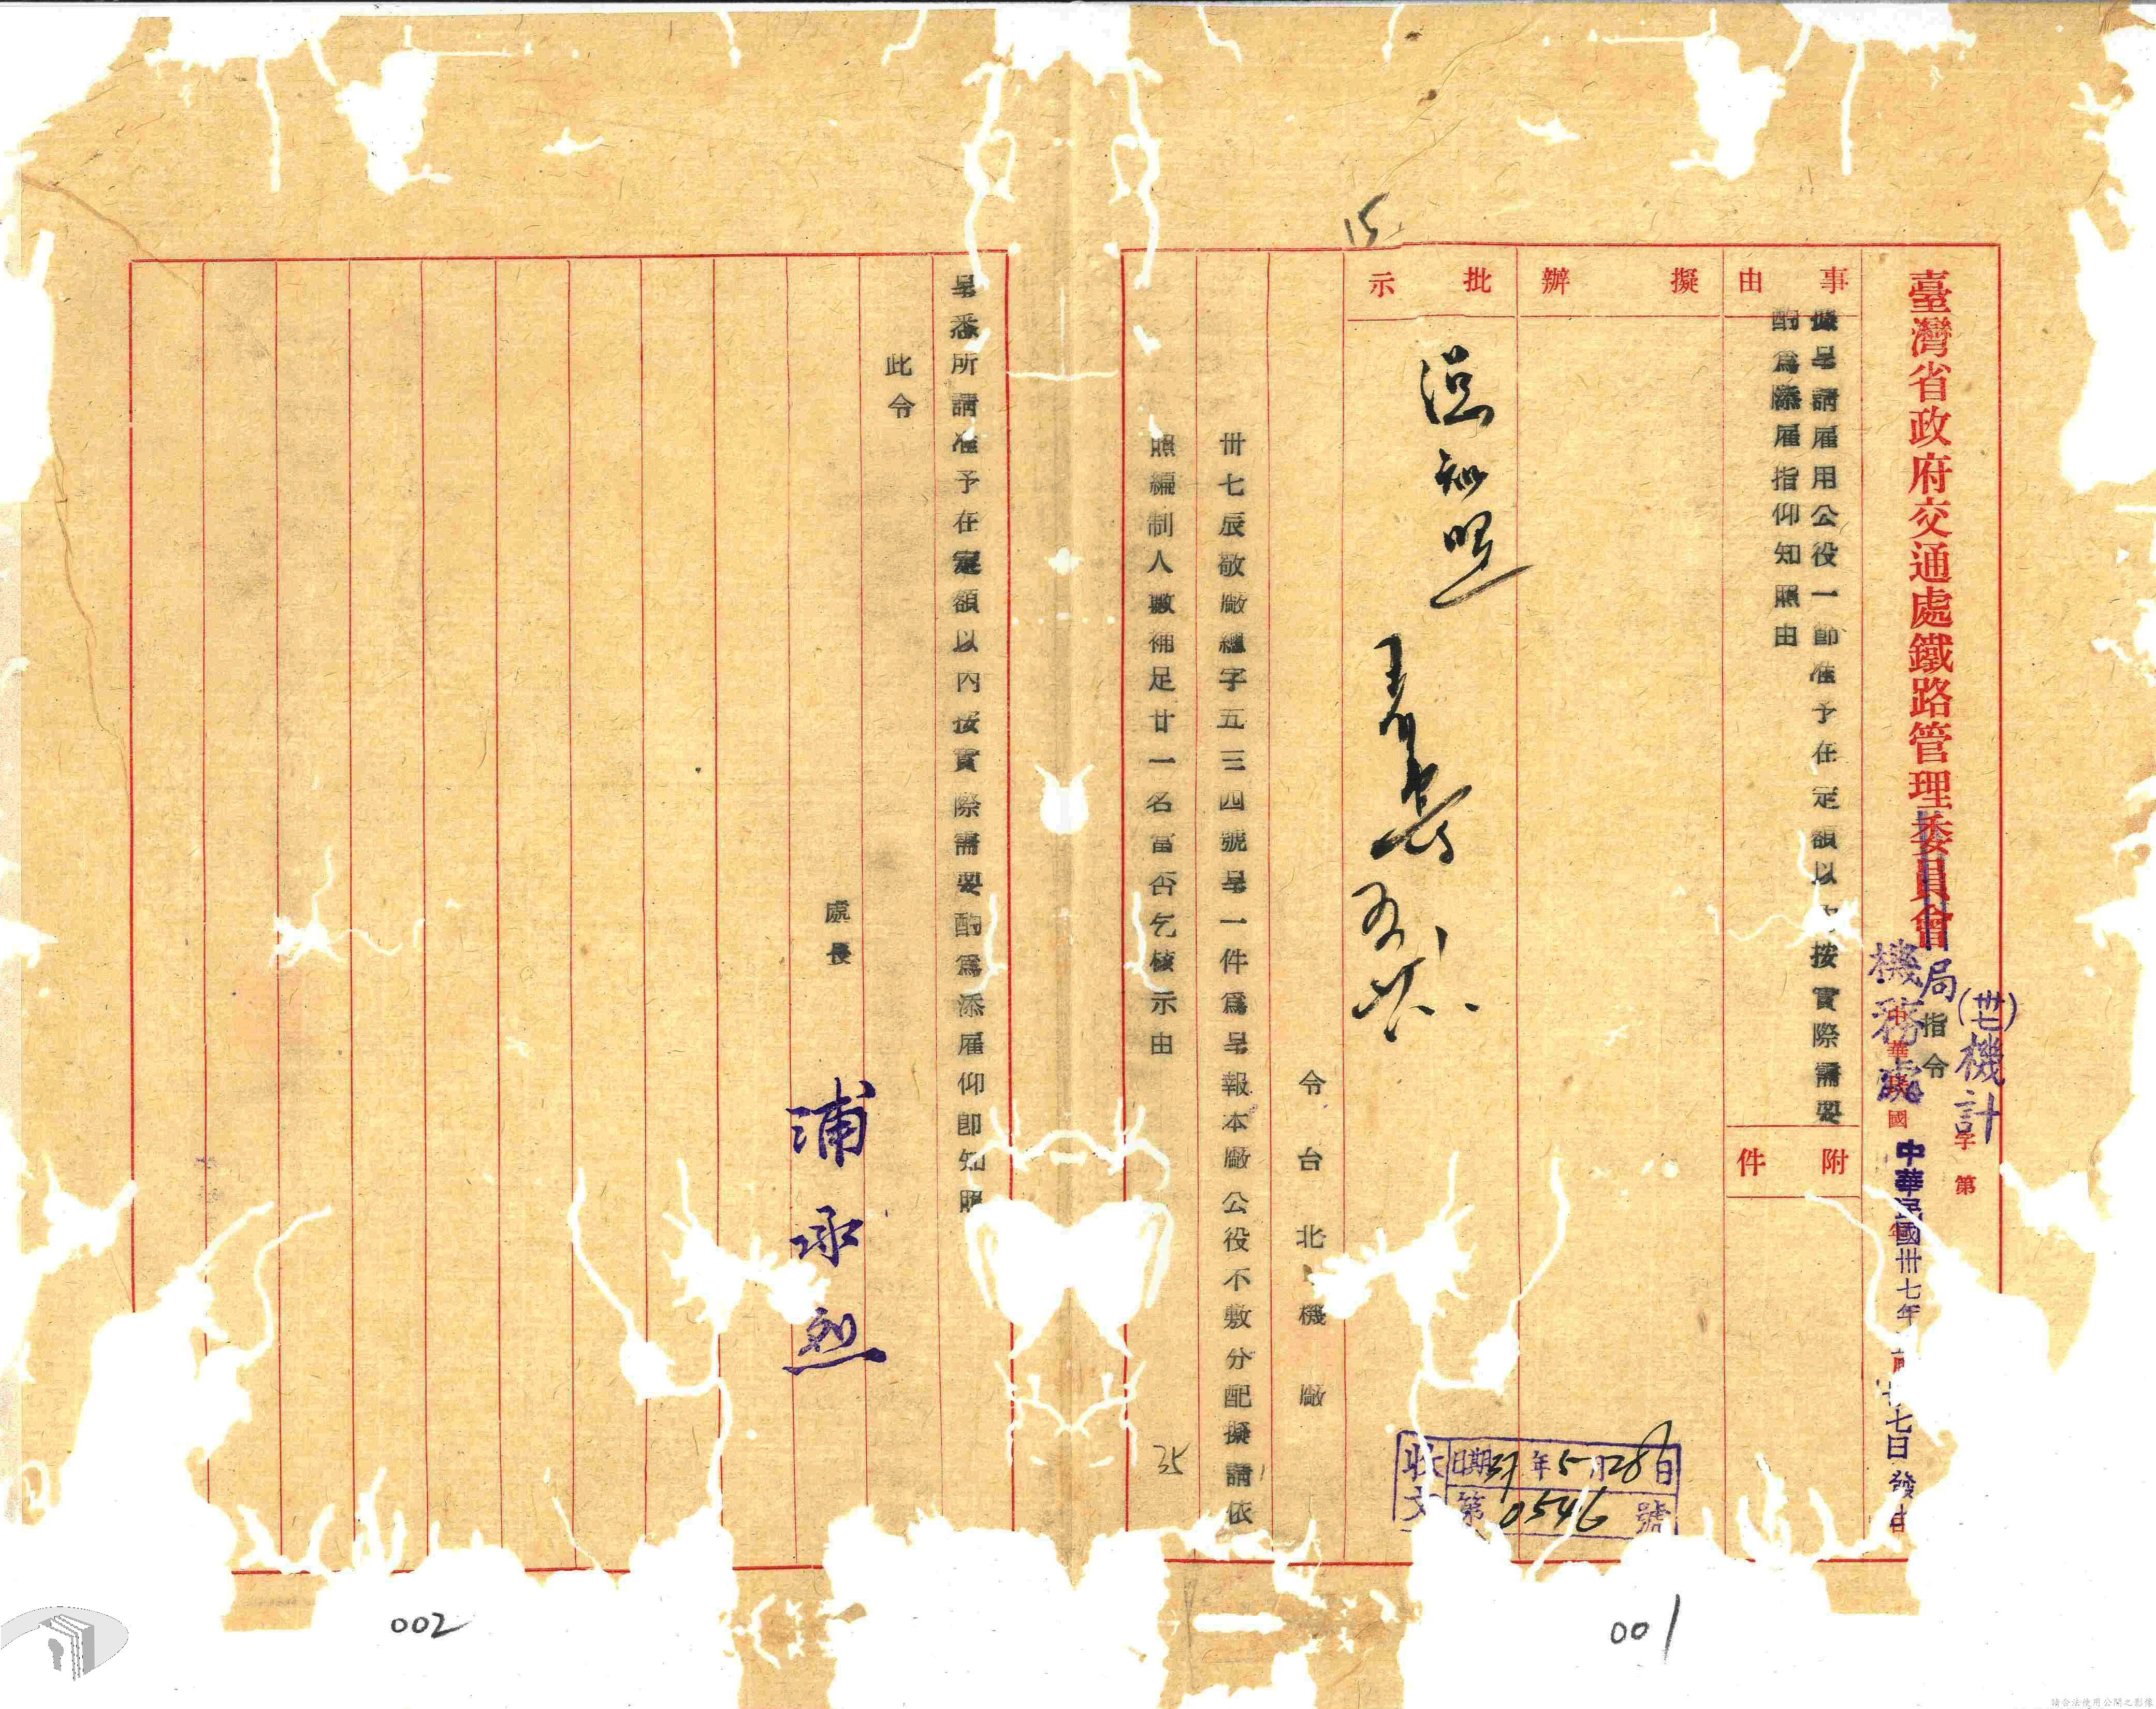 臺灣省政府交通處鐵路管理委員會
局指令
機務處
(卅七)機計字第
中華民國年
中華民國卅七年 月廿七日發
事由
據呈請雇用公役一節准予在定額以內按實際需要
酌爲添雇指仰知照由
附件
擬辦
批示
15
令台北機廠
卅七辰敬廠總字五三四號呈一件爲呈報本廠公役不敷分配擬請依
照編制人數補足廿一名當否乞核示由
35
收文 日期37年5月28日
第0546號
呈悉所請准予在定額以內按實際需要酌爲添雇仰卽知照
此令
處長 浦承烈
001
002
請合法使用公開之影像